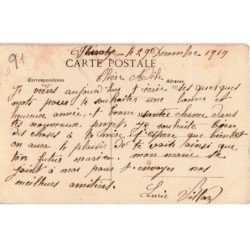 91
le 29 Décembre 1919
CARTE POSTALE
Correspondance
Adresse
Chère
Je viens aujourd'hui t'écrire ces quelques
mots pour te souhaiter une bonne et
heureuse année. et bonne chance dans
tes nouveaux projets. je souhaite bien
des choses à ta et espère que bientôt
on aura le plaisir de te voir ainsi que
ton futur mari. mon mari se
joint à moi pour t'envoyer nos
meilleurs amitiés.
Lucie